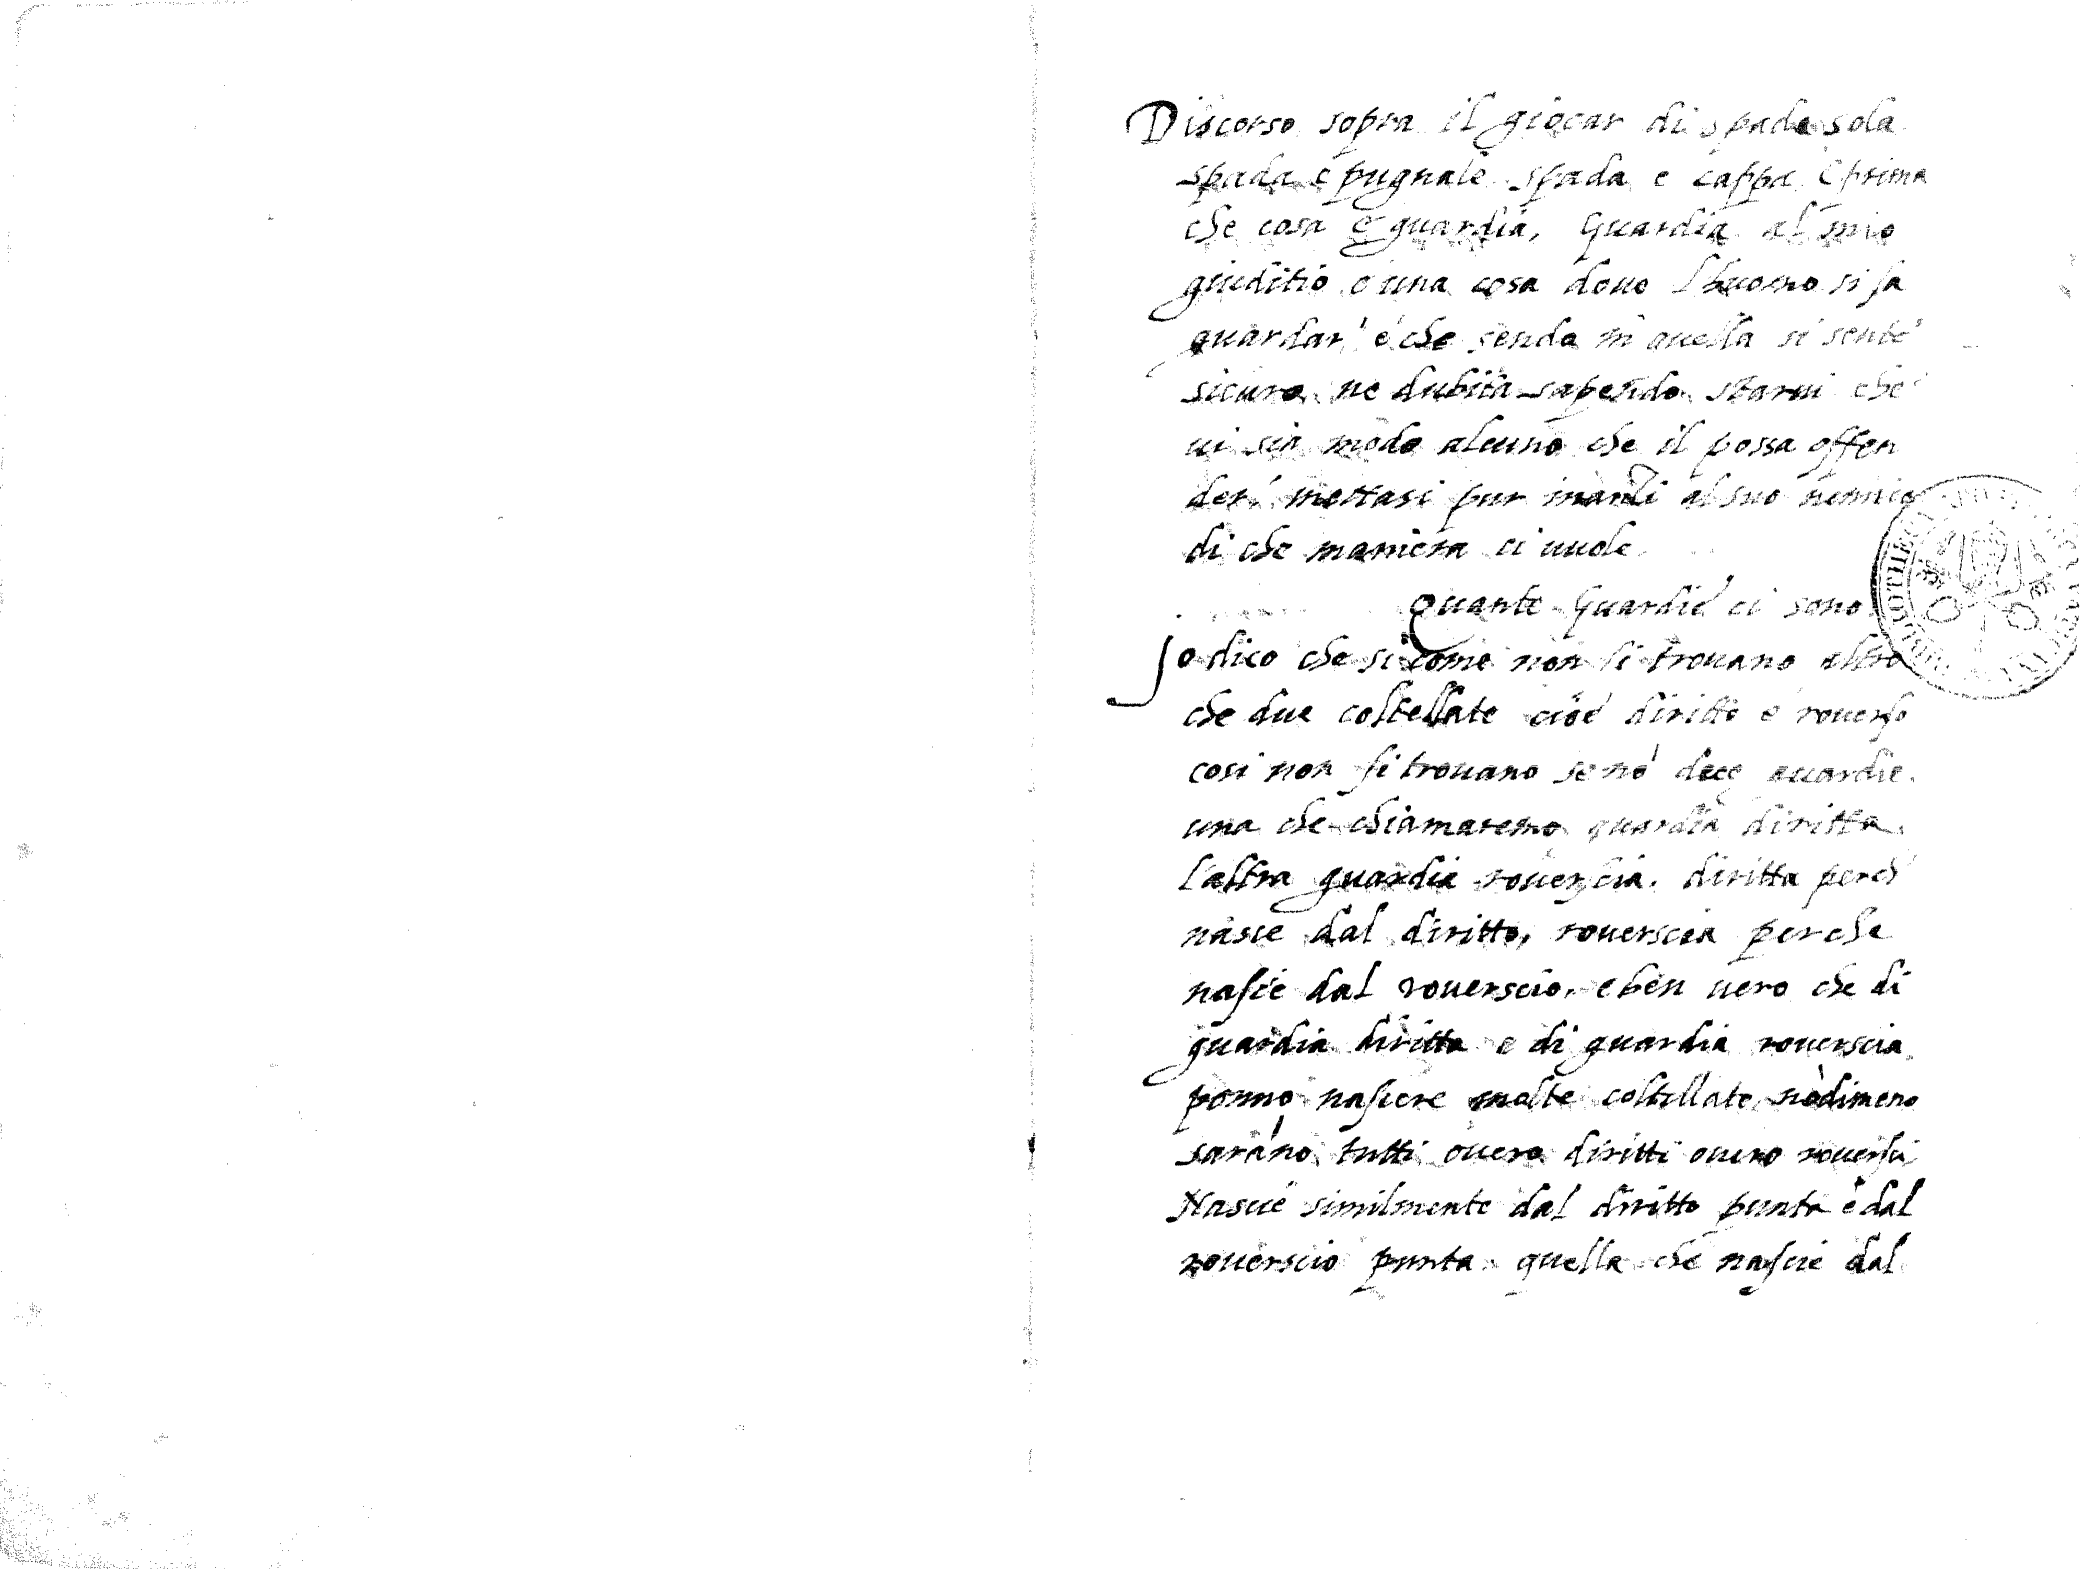 Discorso sopra il giocar di spada sola
spada e pugnale spada e cappa E prima
che cosa è guardia, Guardia al mio
giuditio e una cosa doue l'huomo si fa
guardar' e che sendo in quella si sente
sicuro ne dubita sapendo starui che
ui sia modo alcuno che il possa offen
der' mettasi pur inanzi al suo nemico
di che maniera ei uuole
Quante Guardie ci sono
Jo dico che si come non si trouano altro
che due coltellate cioe diritto e rouerso
cosi non si trouano se nō guardie.
una che chiamaremo guardia diritta
l'altra guardia rouerscia. diritta perch'
nasce dal diritto, rouerscia perche
nascie dal rouerscio, e ben uero che di
guardia diritta e di guardia rouerscia
ponno nascere molte coltellate, nōdimeno
sarāno tutti ouero diritti ouero rouersci
Nascie similmente dal diritto punta e dal
rouerscio punta quella che nascie dal
BIBLIOTHECA